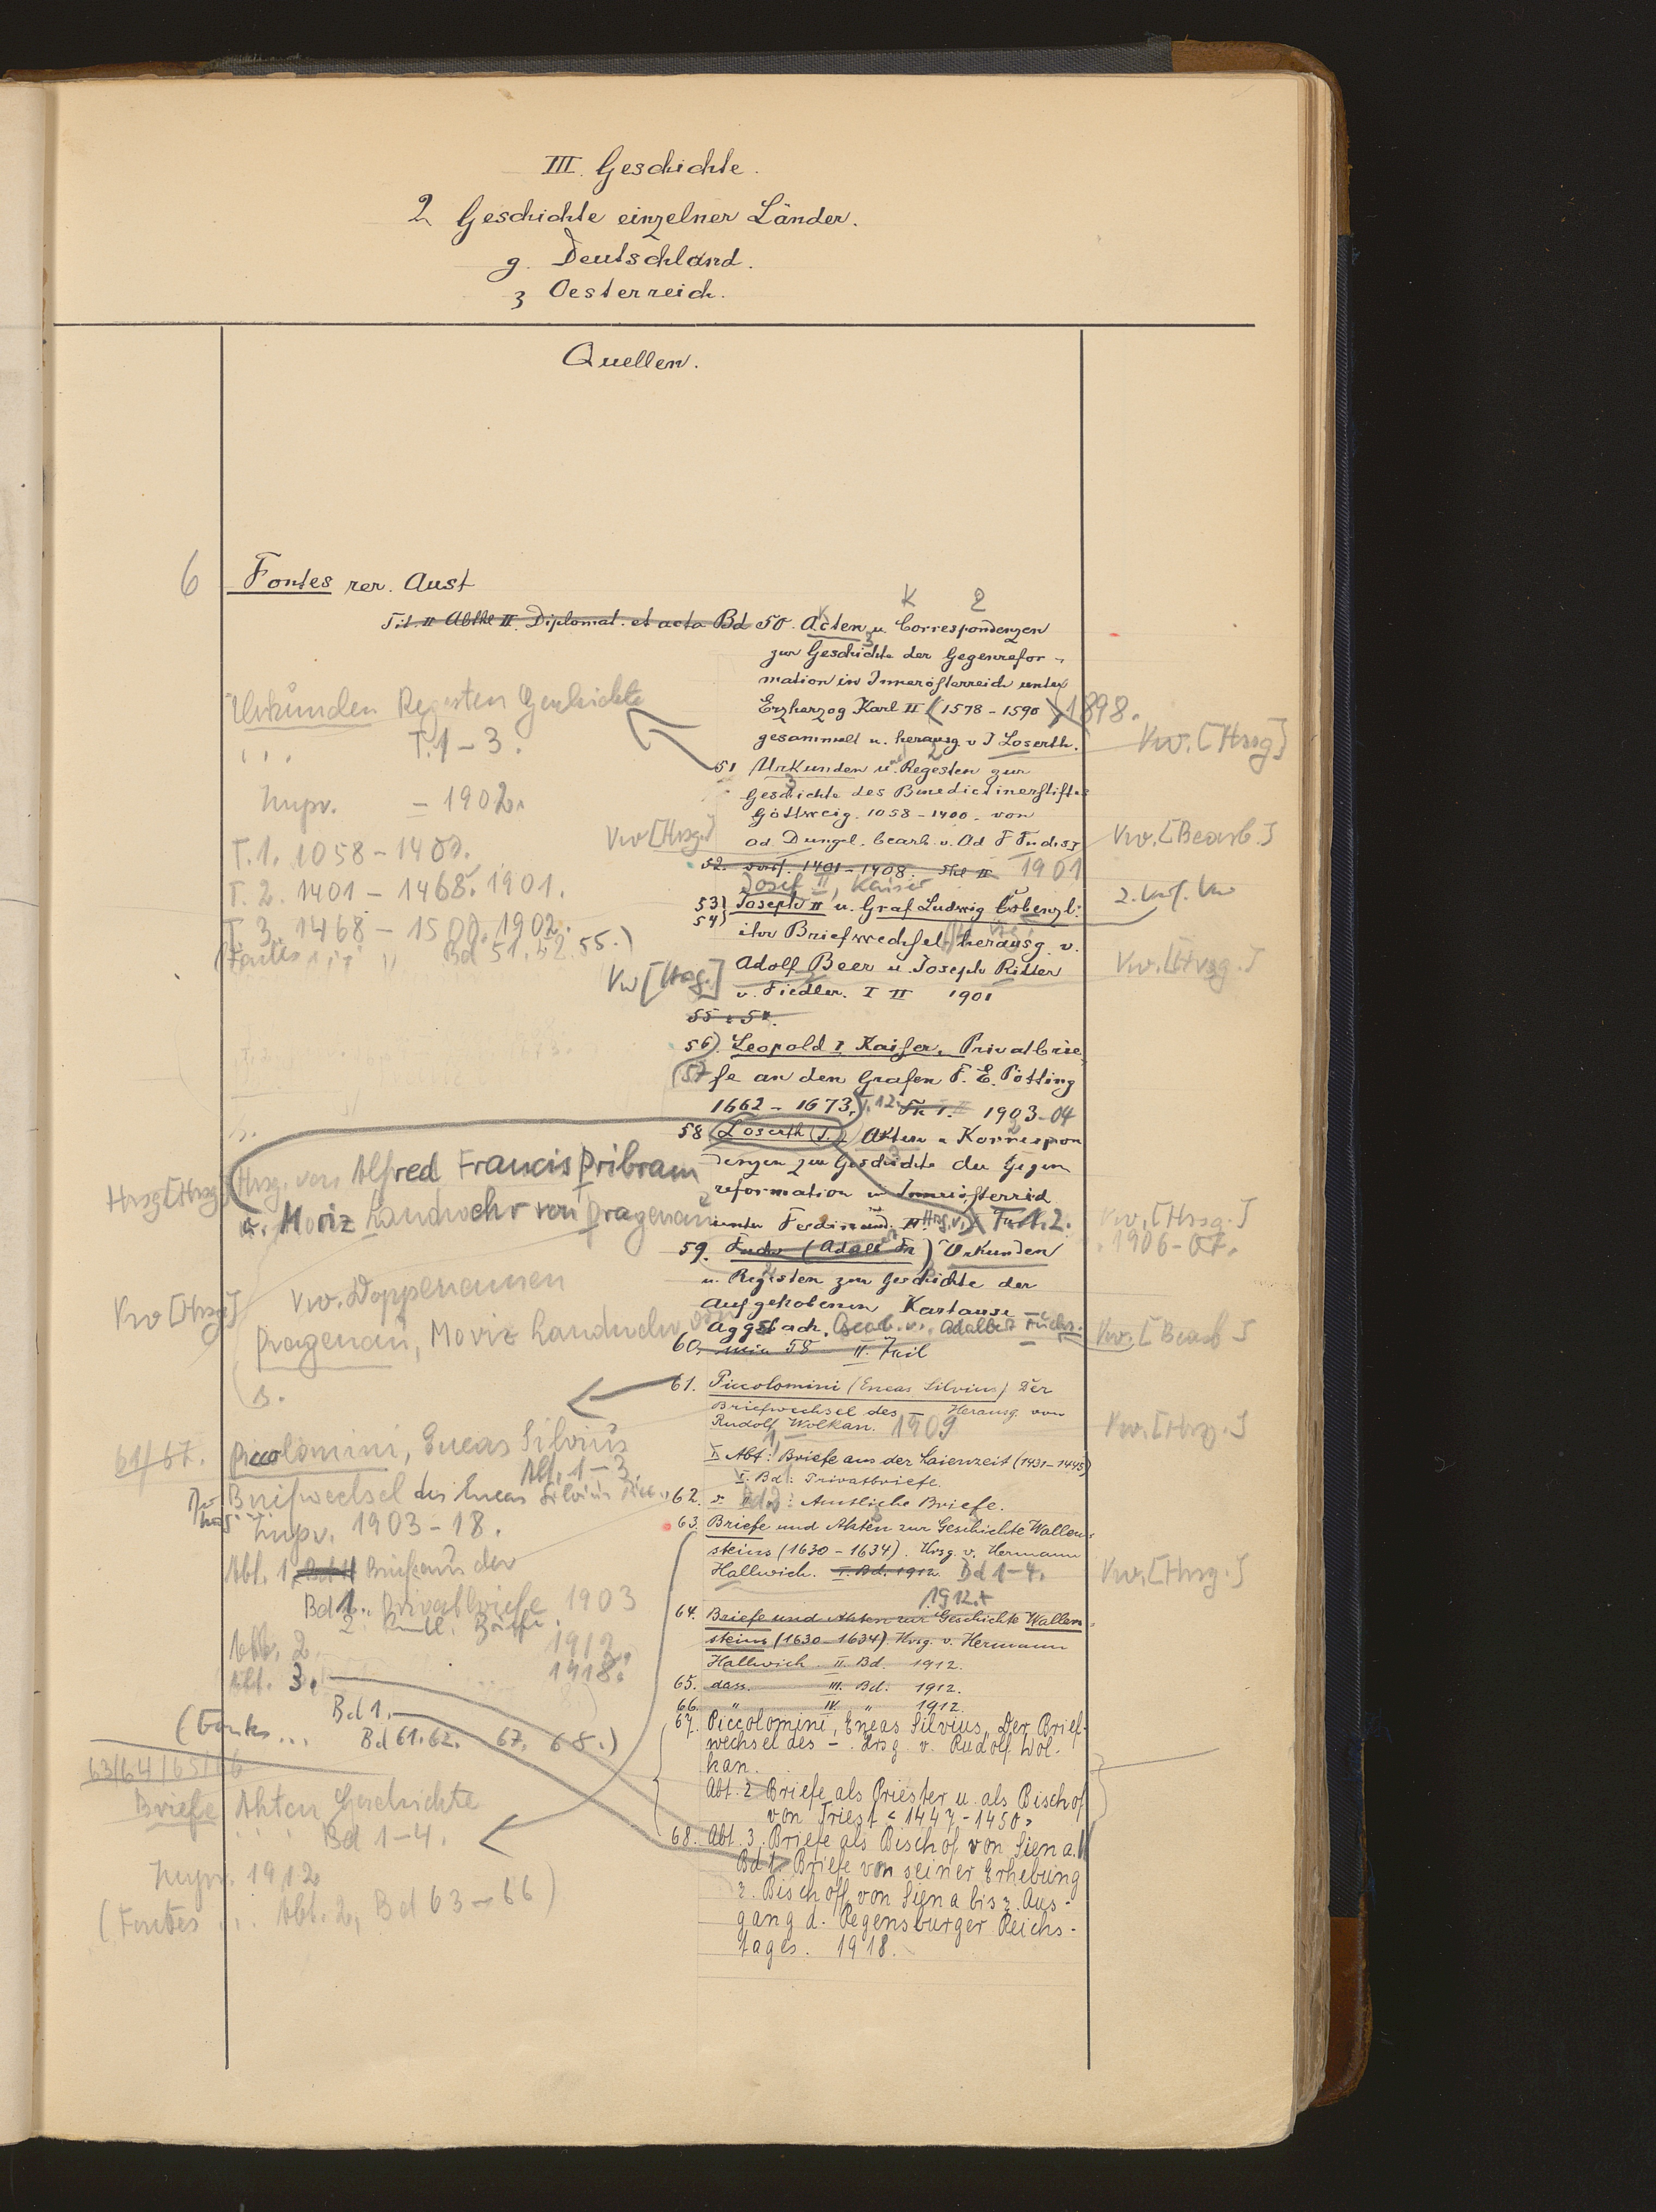 III. Geschichte.
2 Geschichte einzelner Länder.
g. Deutschland.
3 Oesterreich.
Quellen.
6
Fontes rer. Aust
K 2
Tit. II Abthl II. Diplomat. et acta Bd 50. Acten u. Correspondenzen
zur Geschichte der Gegenrefor-
mation in Innerösterreich unter
Erzherzog Karl II (1578-1590) 1898.
gesammelt u. herausg. v J Loserth.
Vw. [Hrsg]
Urkunden Regesten Geschichte
T. 1-3.
Impr. = 1902.
T. 1. 1058-1400.
T. 2. 1401-1468. 1901.
T. 3. 1468-1500. 1902.
(Fontes Bd 51. 52. 55.)
51 Urkunden u. Regesten zur
Geschichte des Benedictinerstiftes
Göttweig. 1058-1400. von
Vw [Hrsg.]
ad. Dungel. bearb. v. Ad F Fuchs
Vw. [Bearb.]
52. 1401-1408. 1901
Josef II, Kaiser
53) Joseph II u. Graf Ludwig Cobenzl:
54)
2. Verf. Vw
ihr Briefwechsel, herausg. v.
Adolf Beer u. Joseph Ritter
Vw. [Hrsg.]
Vw [Hrsg.]
v. Fiedler. I II 1901
56). Leopold I Kaiser. Privatbrie
(57 fe an den Grafen F. E. Pötting
1662-1673. T. 1.2. 1903-04
58 Loserth (J.) Akten u Korrespon
denzen zur Geschichte der Gegen
reformation in Innerösterreich
unter Ferdinand II. Hrsg. v. T. 1. 2.
Vw. [Hrsg.]
1906-07.
Hrsg [Hrsg] Hrsg. von Alfred Francis Pribram
u. Moriz Landwehr von Pragenau
59. Fuchs (Adalb Fr) Urkunden
u. Regesten zur Geschichte der
aufgehobenen Kartause
Aggsbach. Bearb. v. Adalbert Fuchs.
Vw. [Bearb]
Vw [Hrsg]
Vw. Doppelnamen
Pragenau, Moriz Landwehr von
s.
60. wie 58 II. Teil
61. Piccolomini (Eneas Silvius) Der
Briefwechsel des - Herausg. von
Rudolf Wolkan. 1909
Vw. [Hrsg.]
I Abt: Briefe aus der Laienzeit (1431-1445)
I. Bd: Privatbriefe.
62. Bd 2: Amtliche Briefe.
61/67. Piccolomini, Eneas Silvius
Abt. 1-3.
Briefwechsel des Eneas Silvius
Impr. 1903-18.
Abt. 1. Briefe aus der
Bd 1. Privatbriefe 1903
2. Amtl. Briefe.
Abt. 2. 1912.
Abt. 3. 1918.
Bd 1.
(Fontes... Bd 61. 62. 67. 68.)
63. Briefe und Akten zur Geschichte Wallen-
steins (1630-1634). Hrsg. v. Hermann
Hallwich. I. Bd. 1912. Bd 1-4.
Vw. [Hrsg.]
1912.
64. Briefe und Akten zur Geschichte Wallen-
steins (1630-1634). Hrsg. v. Hermann
Hallwich. II. Bd. 1912.
65. dass. III. Bd. 1912.
66. " IV. " 1912.
67. Piccolomini, Eneas Silvius, Der Brief-
wechsel des -. Hrsg. v. Rudolf Wol-
kan.
Abt. 2 Briefe als Priester u. als Bischof
von Triest <1447-1450>
68. Abt. 3. Briefe als Bischof von Siena.
Bd 1. Briefe von seiner Erhebung
z. Bischoff von Siena bis z. Aus-
gang d. Regensburger Reichs-
tages. 1918.
63/64/65/66
Briefe Akten Geschichte
Bd 1-4.
Impr. 1912
(Fontes ... Abt. 2, Bd 63-66)